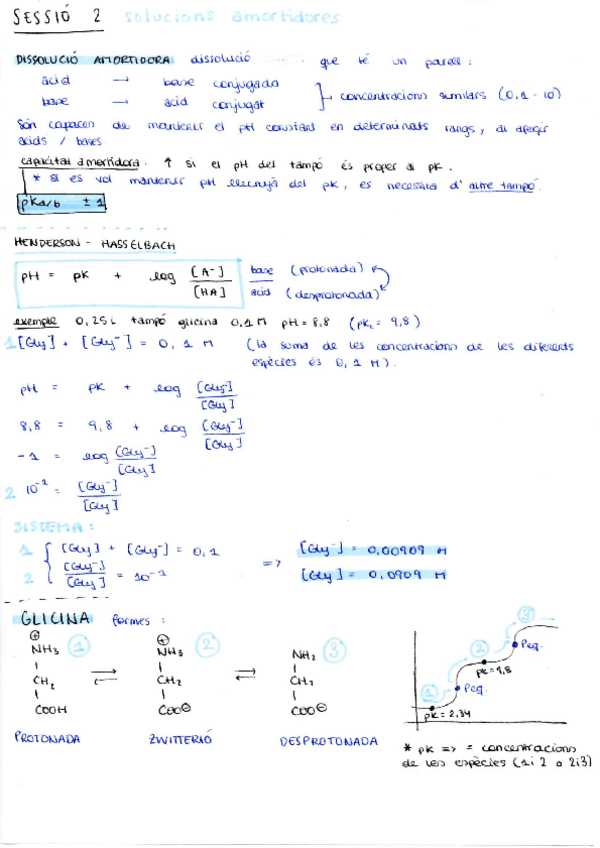 SESSIÓ 2 solucions amortidores
DISSOLUCIÓ AMORTIDORA: dissolució que té un parell:
àcid → base conjugada
base → àcid conjugat
concentracions similars (0,1 - 10)
Són capaces de mantenir el pH constant en determinats rangs, al afegir
àcids / bases.
capacitat amortidora. ↑ si el pH del tampó és proper al pK.
* si es vol mantenir pH llunyà del pK, es necessita d'altre tampó.
pKa/b ± 1
HENDERSON - HASSELBACH
pH = pK + log [A⁻]/[HA] base (protonada)
àcid (desprotonada)
exemple 0,25 L tampó glicina 0,1 M pH = 8,8 (pK₂ = 9,8)
1 [Gly] + [Gly⁻] = 0,1 M (la suma de les concentracions de les diferents
espècies és 0,1 M).
pH = pK + log [Gly⁻]/[Gly]
8,8 = 9,8 + log [Gly⁻]/[Gly]
-1 = log [Gly⁻]/[Gly]
2 10⁻¹ = [Gly⁻]/[Gly]
SISTEMA:
1 [Gly] + [Gly⁻] = 0,1 => [Gly⁻] = 0,00909 M
2 [Gly⁻]/[Gly] = 10⁻¹ [Gly] = 0,0909 M
GLICINA formes:
⊕ ⊕
NH3 1 NH3 2 NH2 3
CH2 CH2 CH2
COOH COO⊖ COO⊖
PROTONADA ZWITTERIÓ DESPROTONADA
3
2 Peq.
pK = 9,8
1 Peq.
pK = 2,34
* pK => = concentracions
de les espècies (1 i 2 o 2 i 3)